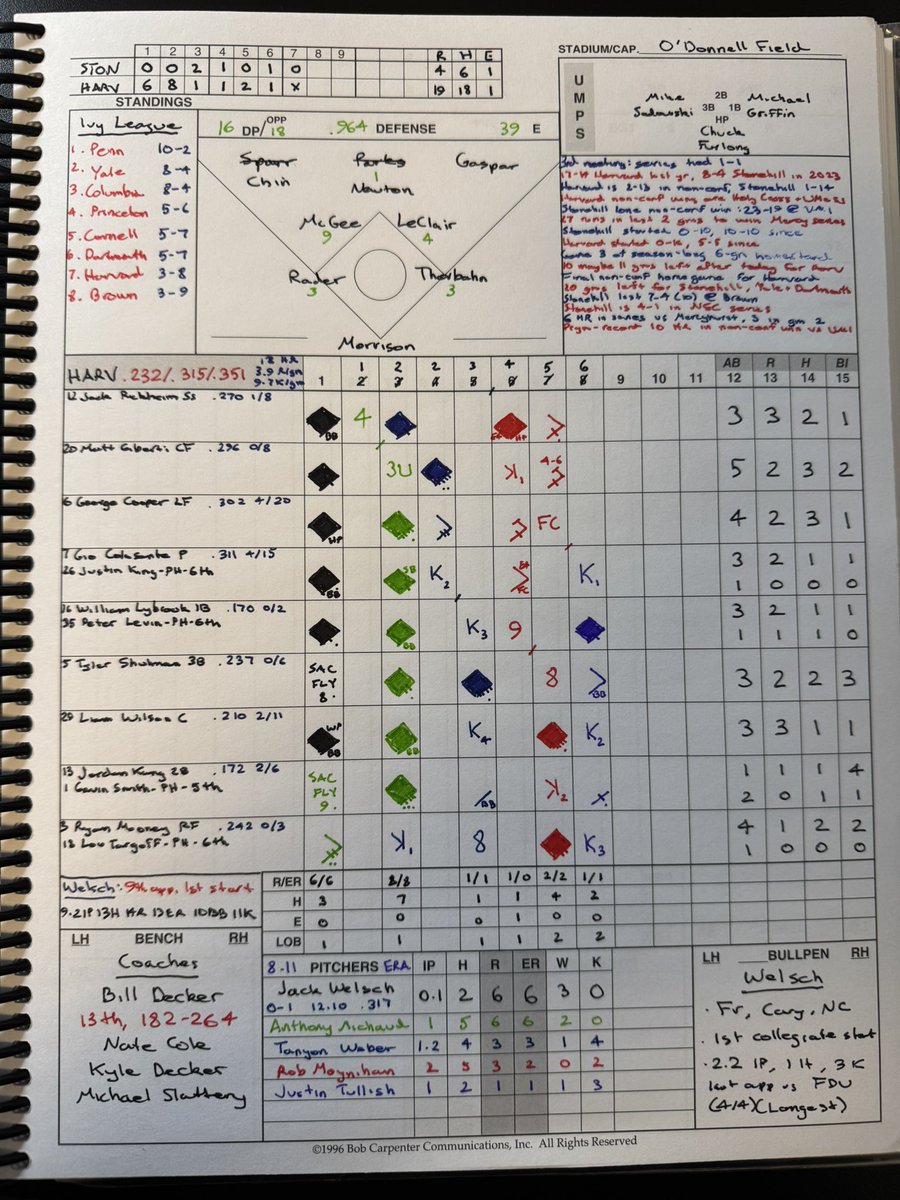 1 2 3 4 5 6 7 8 9 R H E
STON 0 0 2 1 0 1 0 4 6 1
HARV 6 8 1 1 2 1 X 19 18 1
STADIUM/CAP. O'Donnell Field
UMPS
Mike 2B Michael
3B 1B Griffin
HP
Chuck
Furlong
STANDINGS
Ivy League
1. Penn 10-2
2. Yale 8-4
3. Columbia 8-4
4. Princeton 5-6
5. Cornell 5-7
6. Dartmouth 5-7
7. Harvard 3-8
8. Brown 3-9
16 DP/OPP 18 .964 DEFENSE 39 E
Sparr Parks Gaspar
Chin 1
Newton
McGee LeClair
9 4
Rader Thorbahn
3 3
Morrison
3rd meeting: series tied 1-1
17-14 Harvard last yr, 8-4 Stonehill in 2023
Harvard is 2-13 in non-conf, Stonehill 1-14
Harvard non-conf wins are Holy Cross + UMES
Stonehill lone non-conf win: 23-19 @ VMI
27 runs in last 2 gms to win Mercy series
Stonehill started 0-10, 10-10 since
Harvard started 0-12, 5-8 since
Game 3 of season-long 6-gm homestand
10 maybe 11 gms left after today for Harv
Final non-conf home game for Harvard
20 gms left for Stonehill, Yale + Dartmouth
Stonehill lost 7-4 (10) @ Brown
Stonehill is 4-1 in NEC series
6 HR in series vs Mercyhurst, 3 in gm 2
Prgm-record 10 HR in non-conf win vs VMI
HARV .232/.315/.351
18 HR
3.9 R/gm
9.7 K/gm
1 1 2 2 3 2 4 3 5 4 6 5 7 6 8 9 10 11
AB R H BI
12 13 14 15
12 Jack Rickheim SS .270 1/8 BB 4 HP 3 3 2 1
20 Matt Giberti CF .296 0/8 3U K1 4-6 5 2 3 2
6 George Cooper LF .302 4/20 HP FC 4 2 3 1
7 Gio Colasante P .311 4/15 BB SB K2 E4 FC K1 3 2 1 1
26 Justin King-PH-6th 1 0 0 0
16 William Lybrook 1B .170 0/2 BB K3 9 3 2 1 1
35 Peter Levin-PH-6th 1 1 1 0
5 Tyler Shulman 3B .237 0/6 SAC FLY 8 8 BB 3 2 2 3
29 Liam Wilson C .210 2/11 WP BB BB K4 K2 3 3 1 1
13 Jordan Kang 2B .172 2/6 SAC FLY 9 BB K2 1 1 1 4
1 Gavin Smith-PH-5th 2 0 1 1
3 Ryan Mooney RF .242 0/3 K1 8 K3 4 1 2 2
18 Lou Targoff-PH-6th 1 0 0 0
R/ER 6/6 8/8 1/1 1/0 2/2 1/1
H 3 7 1 1 4 2
E 0 0 0 1 0 0
LOB 1 1 1 1 2 2
Welsch: 9th app, 1st start
9.2IP 13H HR 13ER 10BB 11K
LH BENCH RH
Coaches
Bill Decker
13th, 182-264
Nate Cole
Kyle Decker
Michael Slattery
8-11 PITCHERS ERA IP H R ER W K
Jack Welsch 0.1 2 6 6 3 0
0-1 12.10 .317
Anthony Michaud 1 5 6 6 2 0
Tanyon Weber 1.2 4 3 3 1 4
Rob Moynihan 2 5 3 2 0 2
Justin Tullish 1 2 1 1 1 3
LH BULLPEN RH
Welsch
· Fr, Cary, NC
· 1st collegiate start
· 2.2 IP, 1 H, 3 K
last app vs FDU
(4/4) (Longest)
©1996 Bob Carpenter Communications, Inc. All Rights Reserved